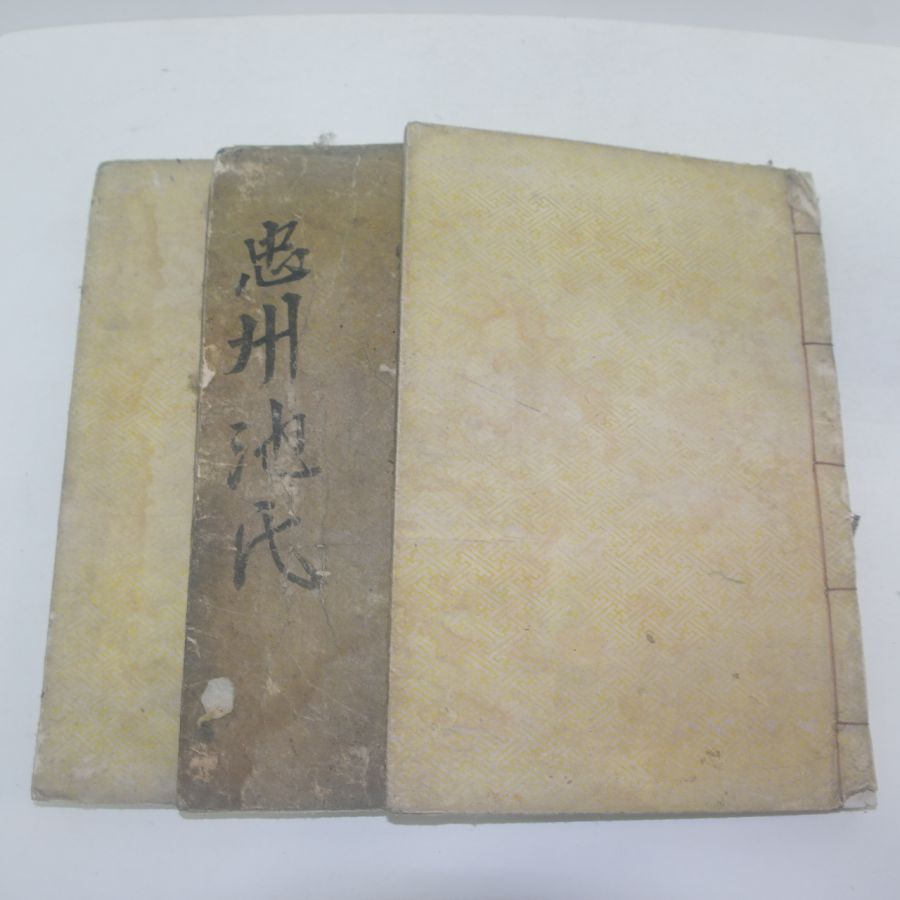 忠州池氏